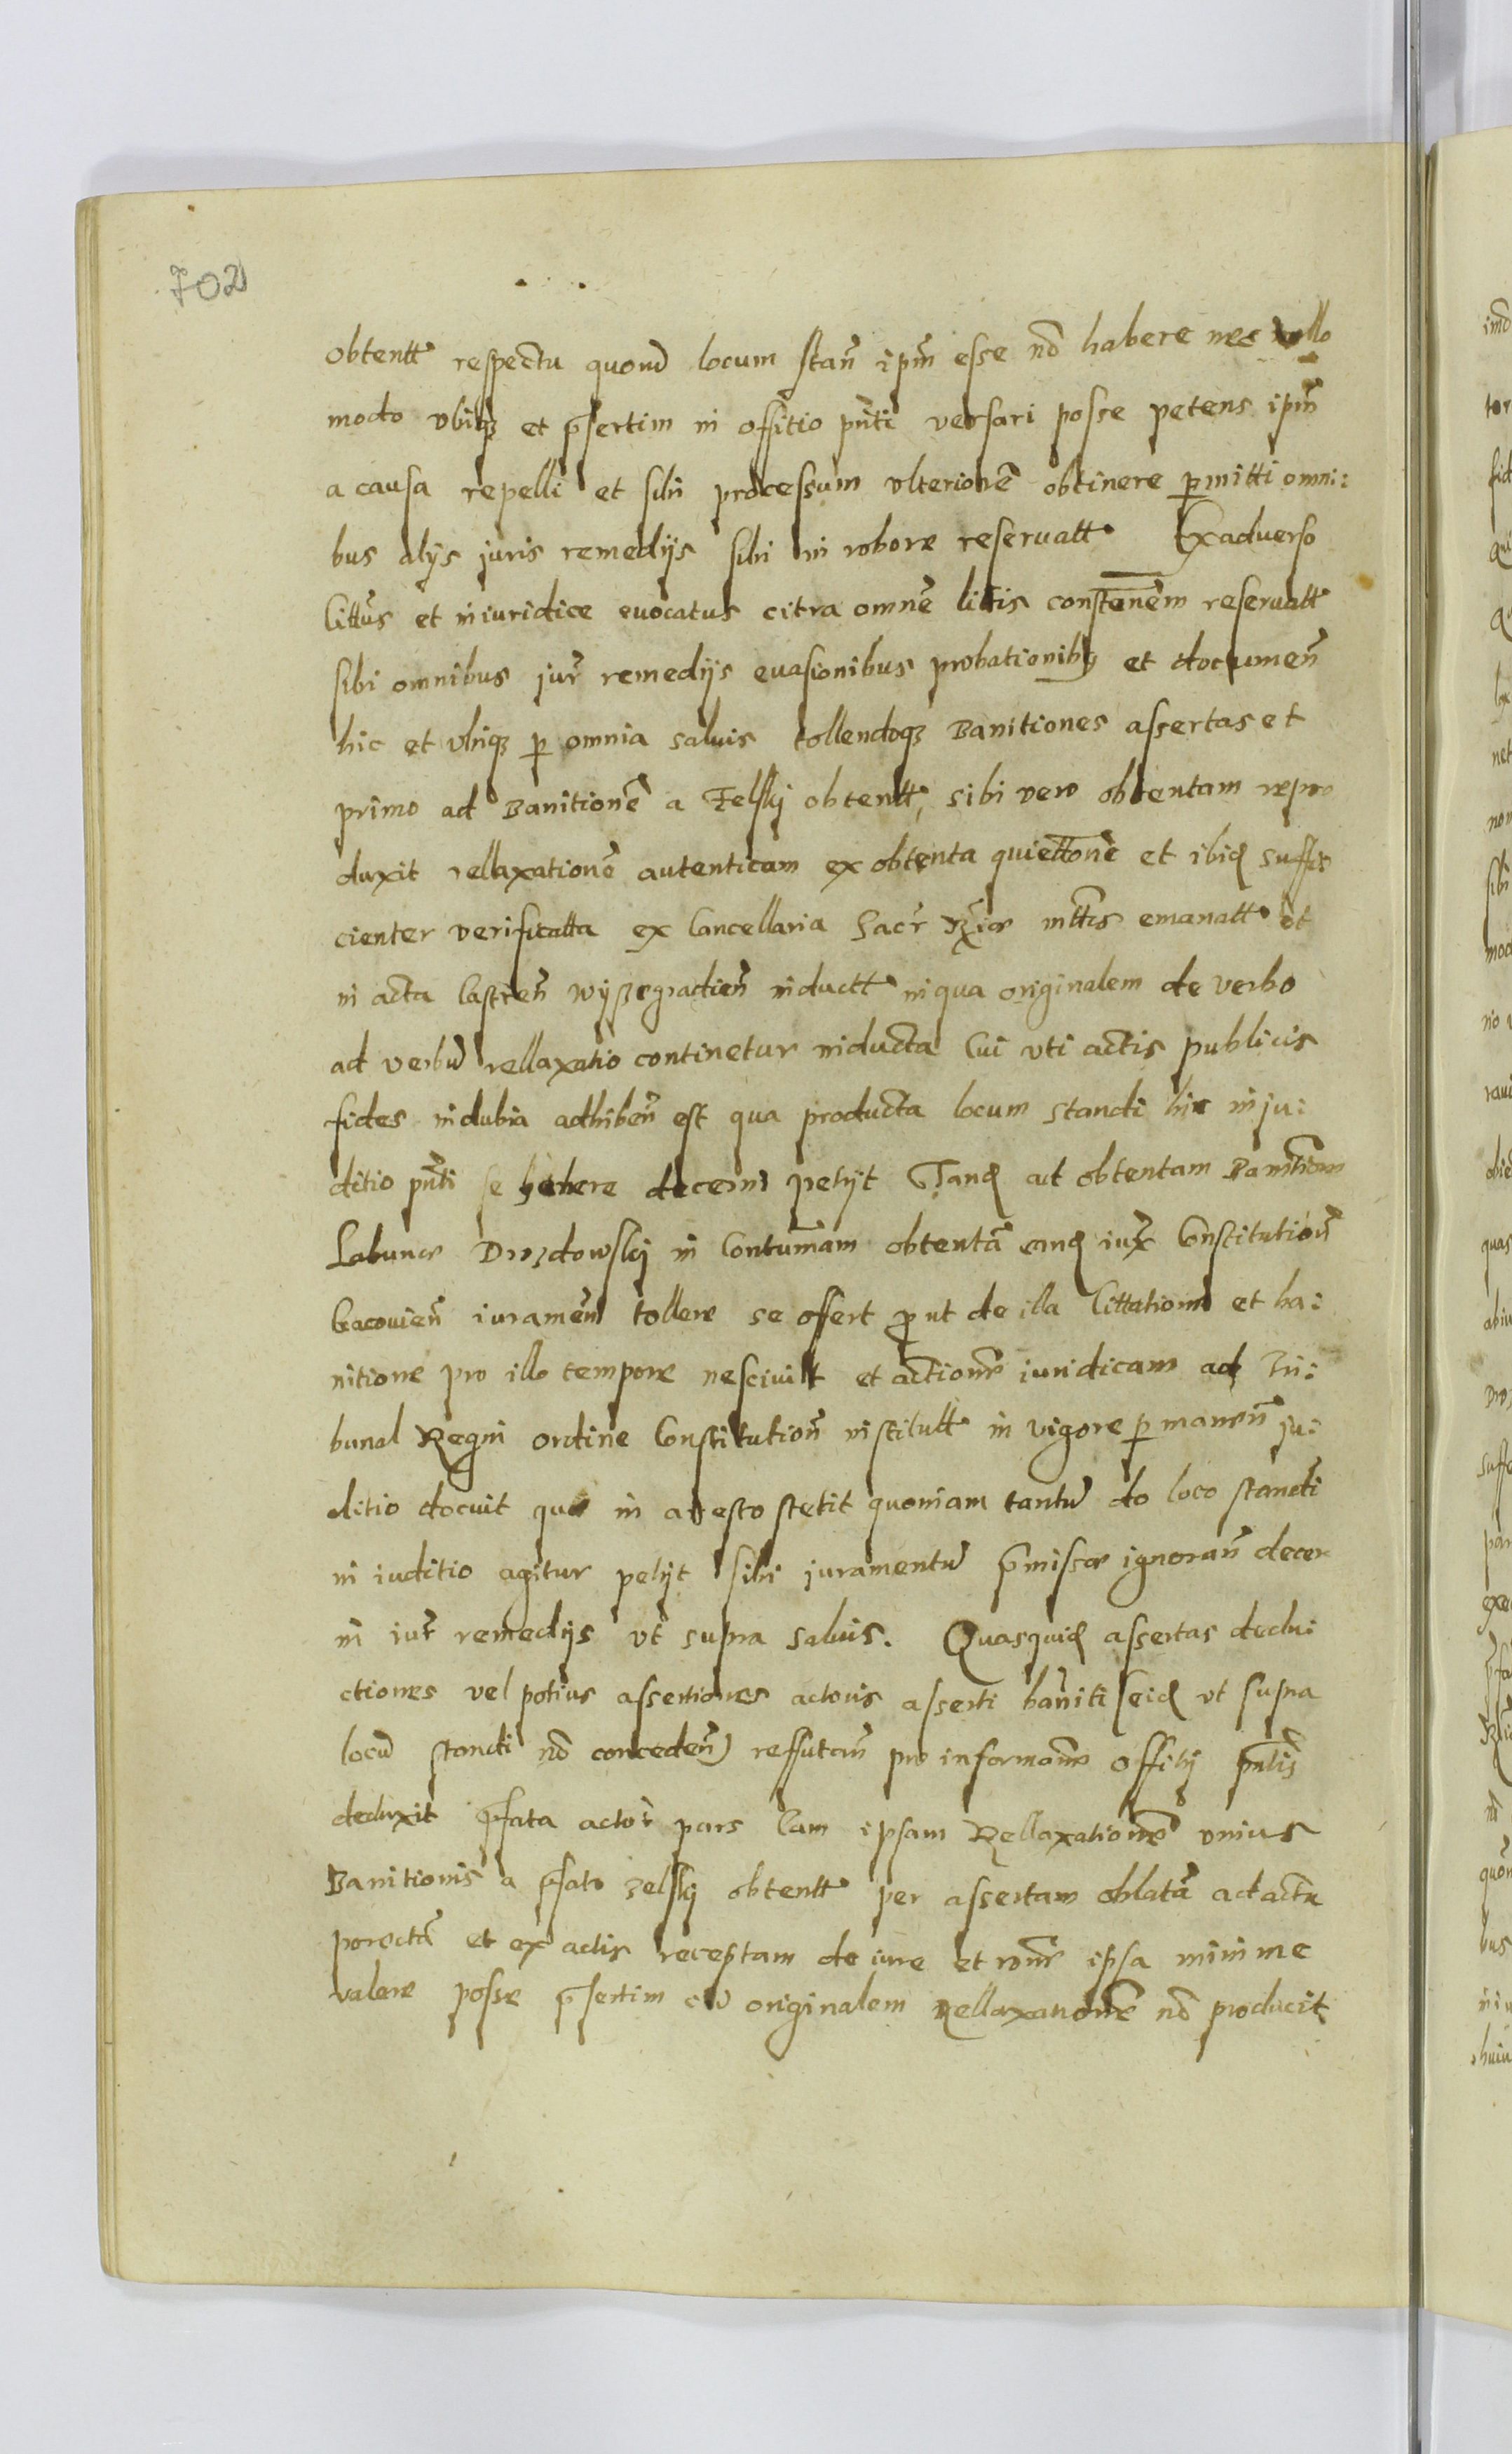 702
obtentt respectu quorum locum stan ipm esse no habere nec vollo
modo vbiq et prsertim in offitio pnti versari posse petens ipm
a causa repelli et sibi processum vlteriorem obtinere p mitti omni:
bus alijs juris remedijs sibi in robore reservatt Ex aduerso
Cittus et injuridice evocatus citra omne littis constanem reservatt
sibi omnibus jur remedijs evasionibus probationibq et documen
hic et vbiq p omnia salvis tollendoq Banitiones assertas et
primo ad Banitione a Zelskj obtentt, sibi vero obtentam repro
duxit rellaxatione autenticam ex obtenta quiettone et ibid suffi
cienter verificatta ex Cancellaria Sacr Rgie mttis emanatt et
in acta Castren Wyszegradien inductt in qua originalem de verbo
ad verbu rellaxatio continetur inducta Cui vti actis publicis
fides indubia adhiben est qua producta locum standi hic in ju:
ditio pnti se habere decerni petijt Tand ad obtentam Banitione
Drozdowskj in Contumam obtenta eand iux Constitution
Cracovien juramen tollere se offert prout de illa Cittatione et ba:
nitione pro illo tempore nescivit et actione juridicam ad Tri:
bunal Regni ordine Constitution institutt in vigore p manen ju:
ditio docuit que in aresto stetit quoniam tantu de loco standi
in juditio agitur petijt sibi juramentu prmissor ignoran decer
ni jur remedijs vt supra salvis. Quasquid assertas dedu:
ctiones vel potius assertiones actoris asserti baniti (eid vt supra
locu standi no conceden) reffutan pro informane offitij pntis
deduxit prfata actor pars Cam ipsam Rellaxatione vnius
Banitionis a prfato Zelskj obtentt per assertam oblata ad acta
porecta et ex actis receptam de iure et rone ipsa minime
valere posse prsertim cu originalem Rellaxatione no producit